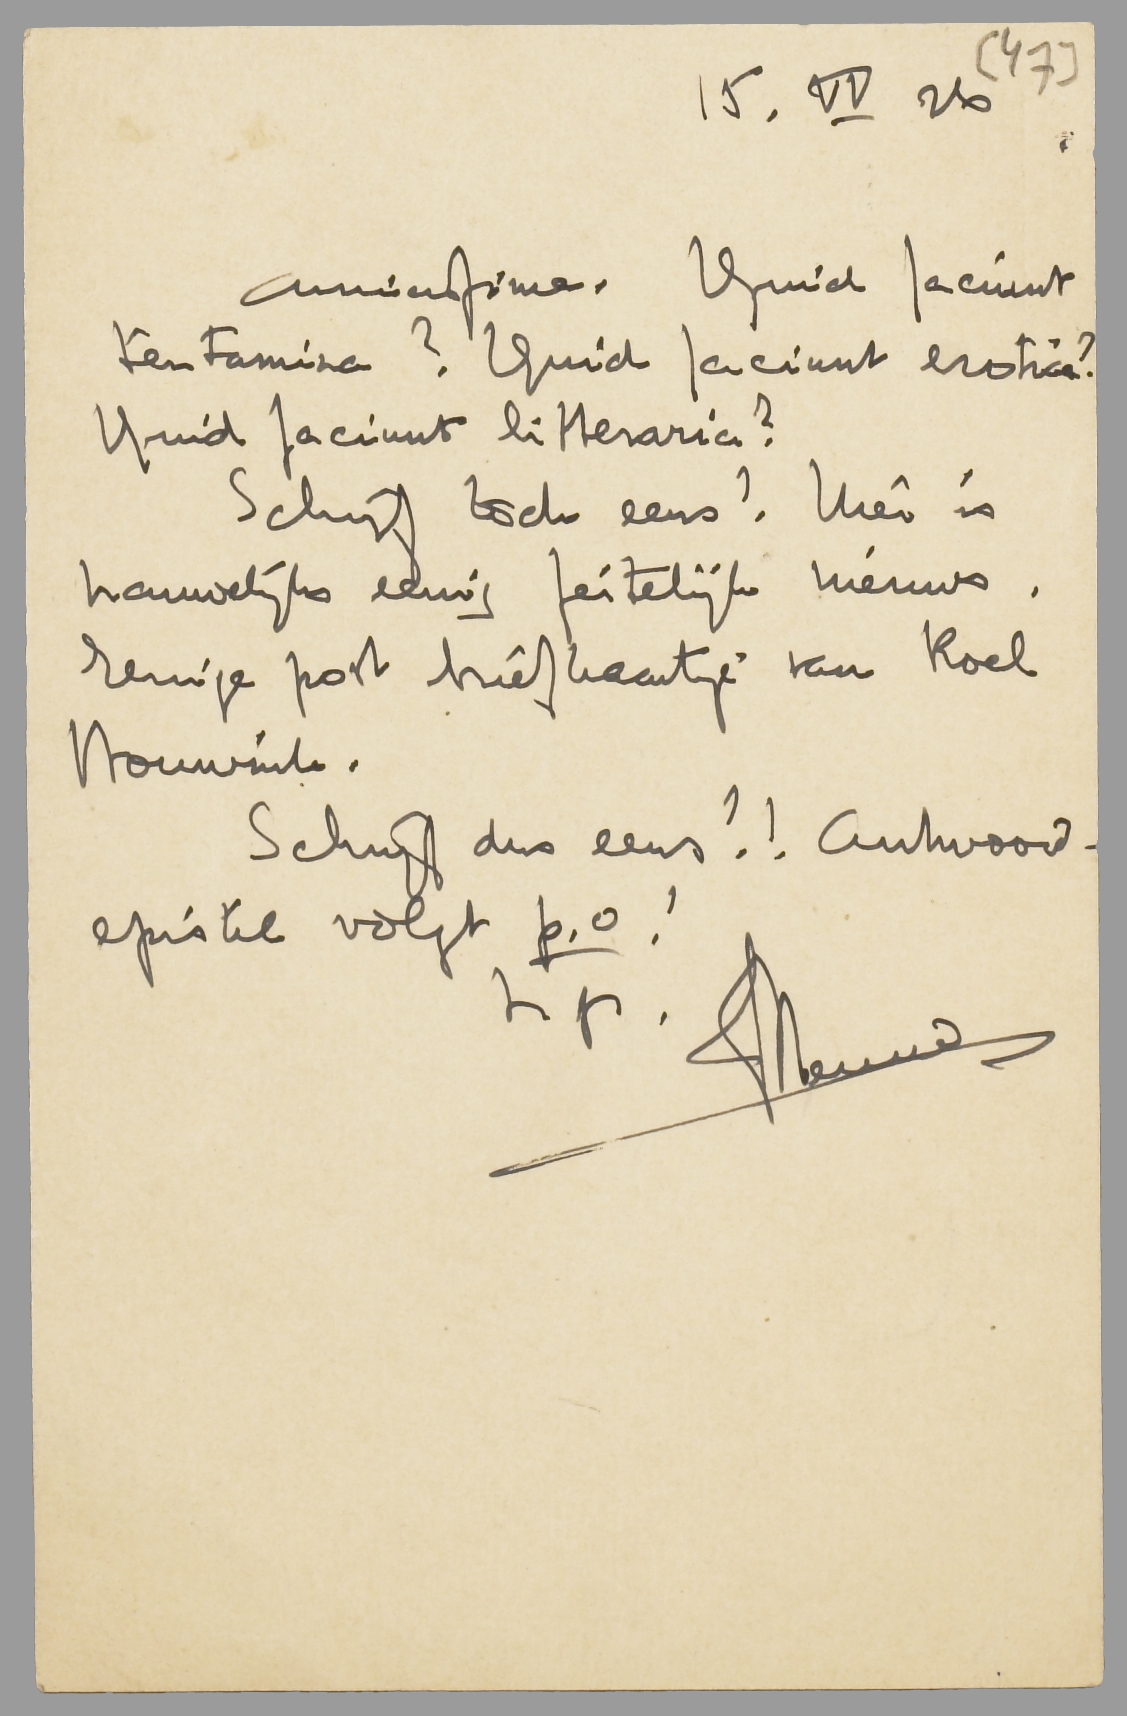 [47]
15. VI 26
Amicissime. Quid faciunt
tentamina? Quid faciunt erotica?
Quid faciunt litteraria?
Schrijf toch eens! Hier is
nauwelijks eenig feitelijk nieuws.
Eenige post briefkaartje van Roel
Houwink.
Schrijf dus eens!! Antwoord-
epistel volgt p.o!
Menno